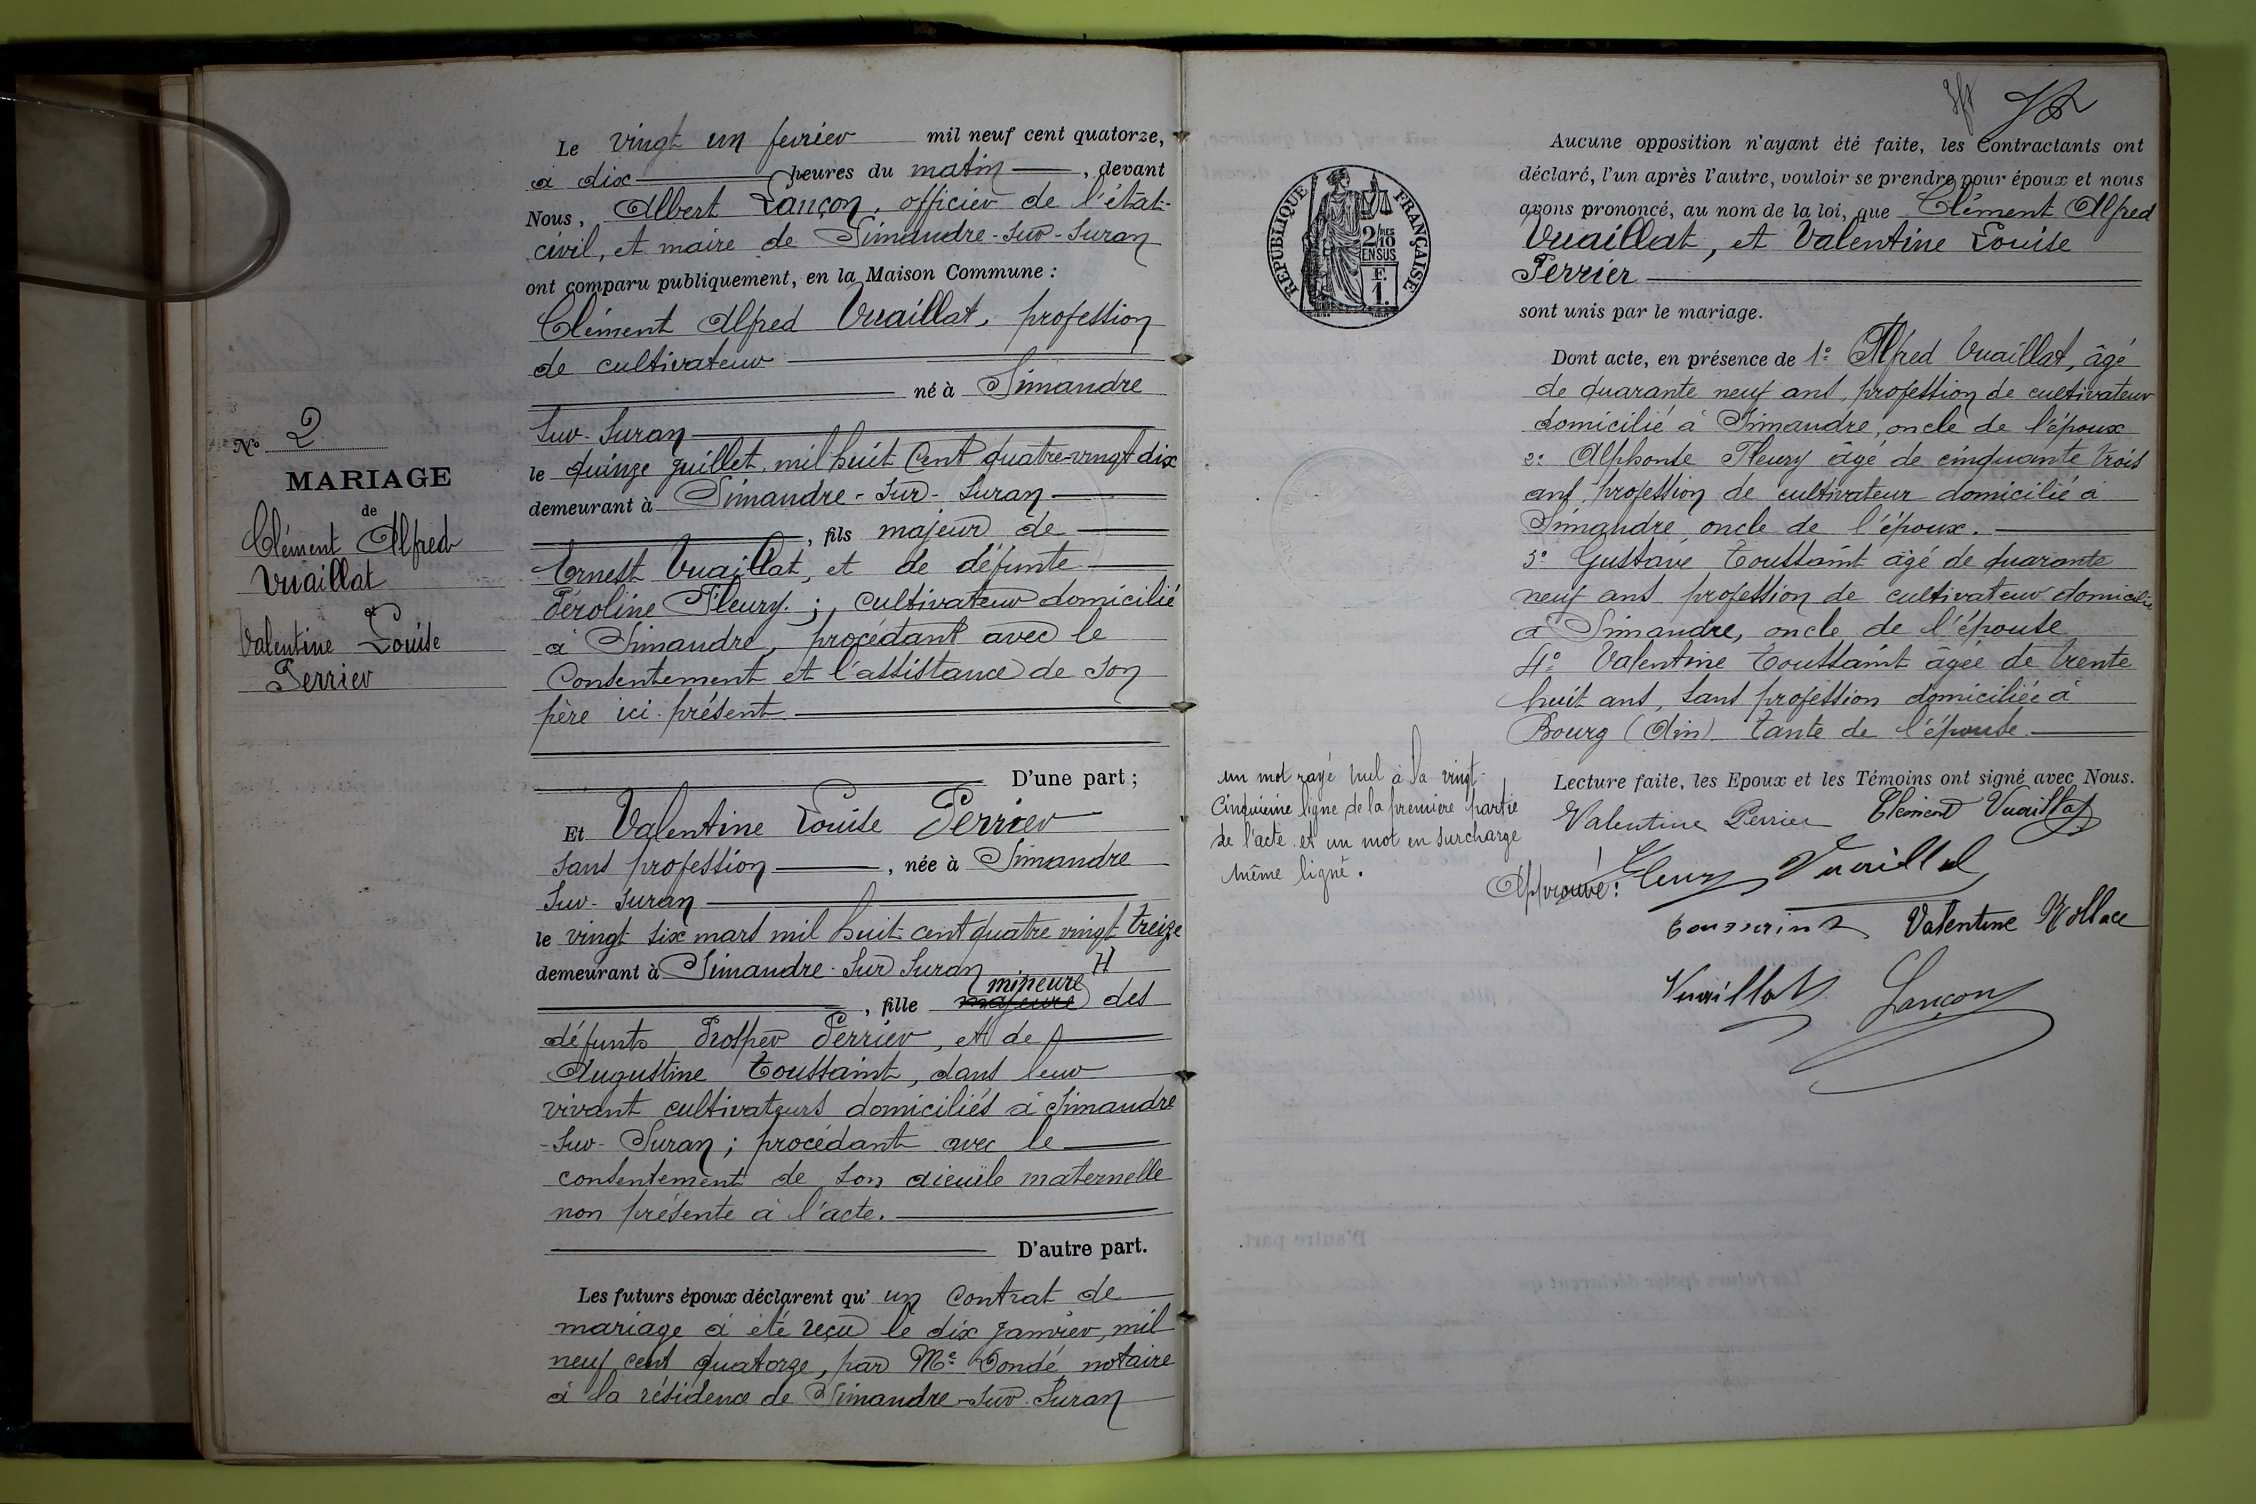 N° 2
MARIAGE
de
Clément Alfred
Vuaillat
et
Valentine Louise
Perrier
Le vingt un fevrier mil neuf cent quatorze,
à dix heures du matin, devant
Nous, Albert Lançon, officier de l'état-
civil, et maire de Simandre-sur-Suran
ont comparu publiquement, en la Maison Commune :
Clément Alfred Vuaillat, profession
de cultivateur
né à Simandre
Sur-Suran
le quinze juillet, mil huit cent quatre-vingt dix
demeurant à Simandre-sur-Suran
, fils majeur de
Ernest Vuaillat, et de défunte
Péroline Fleury ; cultivateur domicilié
à Simandre, procédant avec le
Consentement et l'assistance de son
père ici présent
D'une part ;
Et Valentine Louise Perrier
sans profession, née à Simandre
Sur-Suran
le vingt six mars mil huit cent quatre vingt treize
demeurant à Simandre-sur Suran
mineure
, fille majeure des
défunts Prosper Perrier, et de
Augustine Toussaint, dans leur
vivant cultivateurs domiciliés à Simandre
-sur-Suran ; procédant avec le
consentement de son aieuile maternelle
non présente à l'acte.
D'autre part.
Les futurs époux déclarent qu' un contrat de
mariage à été reçu le dix janvier, mil
neuf cent quatorze, par Me Dondé notaire
à la résidence de Simandre-sur-Suran
RÉPUBLIQUE FRANÇAISE
2/10
EN SUS
F.
1.
Aucune opposition n'ayant été faite, les Contractants ont
déclaré, l'un après l'autre, vouloir se prendre pour époux et nous
avons prononcé, au nom de la loi, que Clément Alfred
Vuaillat, et Valentine Louise
Perrier
sont unis par le mariage.
Dont acte, en présence de 1° Alfred Vuaillat, âgé
de quarante neuf ans, profession de cultivateur
domicilié à Simandre, oncle de l'époux
2° Alphonse Fleury âgé de cinquante trois
ans, profession de cultivateur domicilié à
Simandre oncle de l'époux.
3° Gustave Toussaint âgé de quarante
neuf ans profession de cultivateur domicilié
à Simandre, oncle de l'épouse
4° Valentine Toussaint âgée de trente
huit ans, sans profession domiciliée à
Bourg (Ain) tante de l'épouse
Lecture faite, les Epoux et les Témoins ont signé avec Nous.
un mot rayé nul à la vingt-
Cinquième ligne de la première partie
de l'acte et un mot en surcharge
même ligne.
Approuvé :
Valentine Perrier Clément Vuaillat
Fleury Vuaillat
Toussaint Valentine Mollace
Vuaillat Lançon